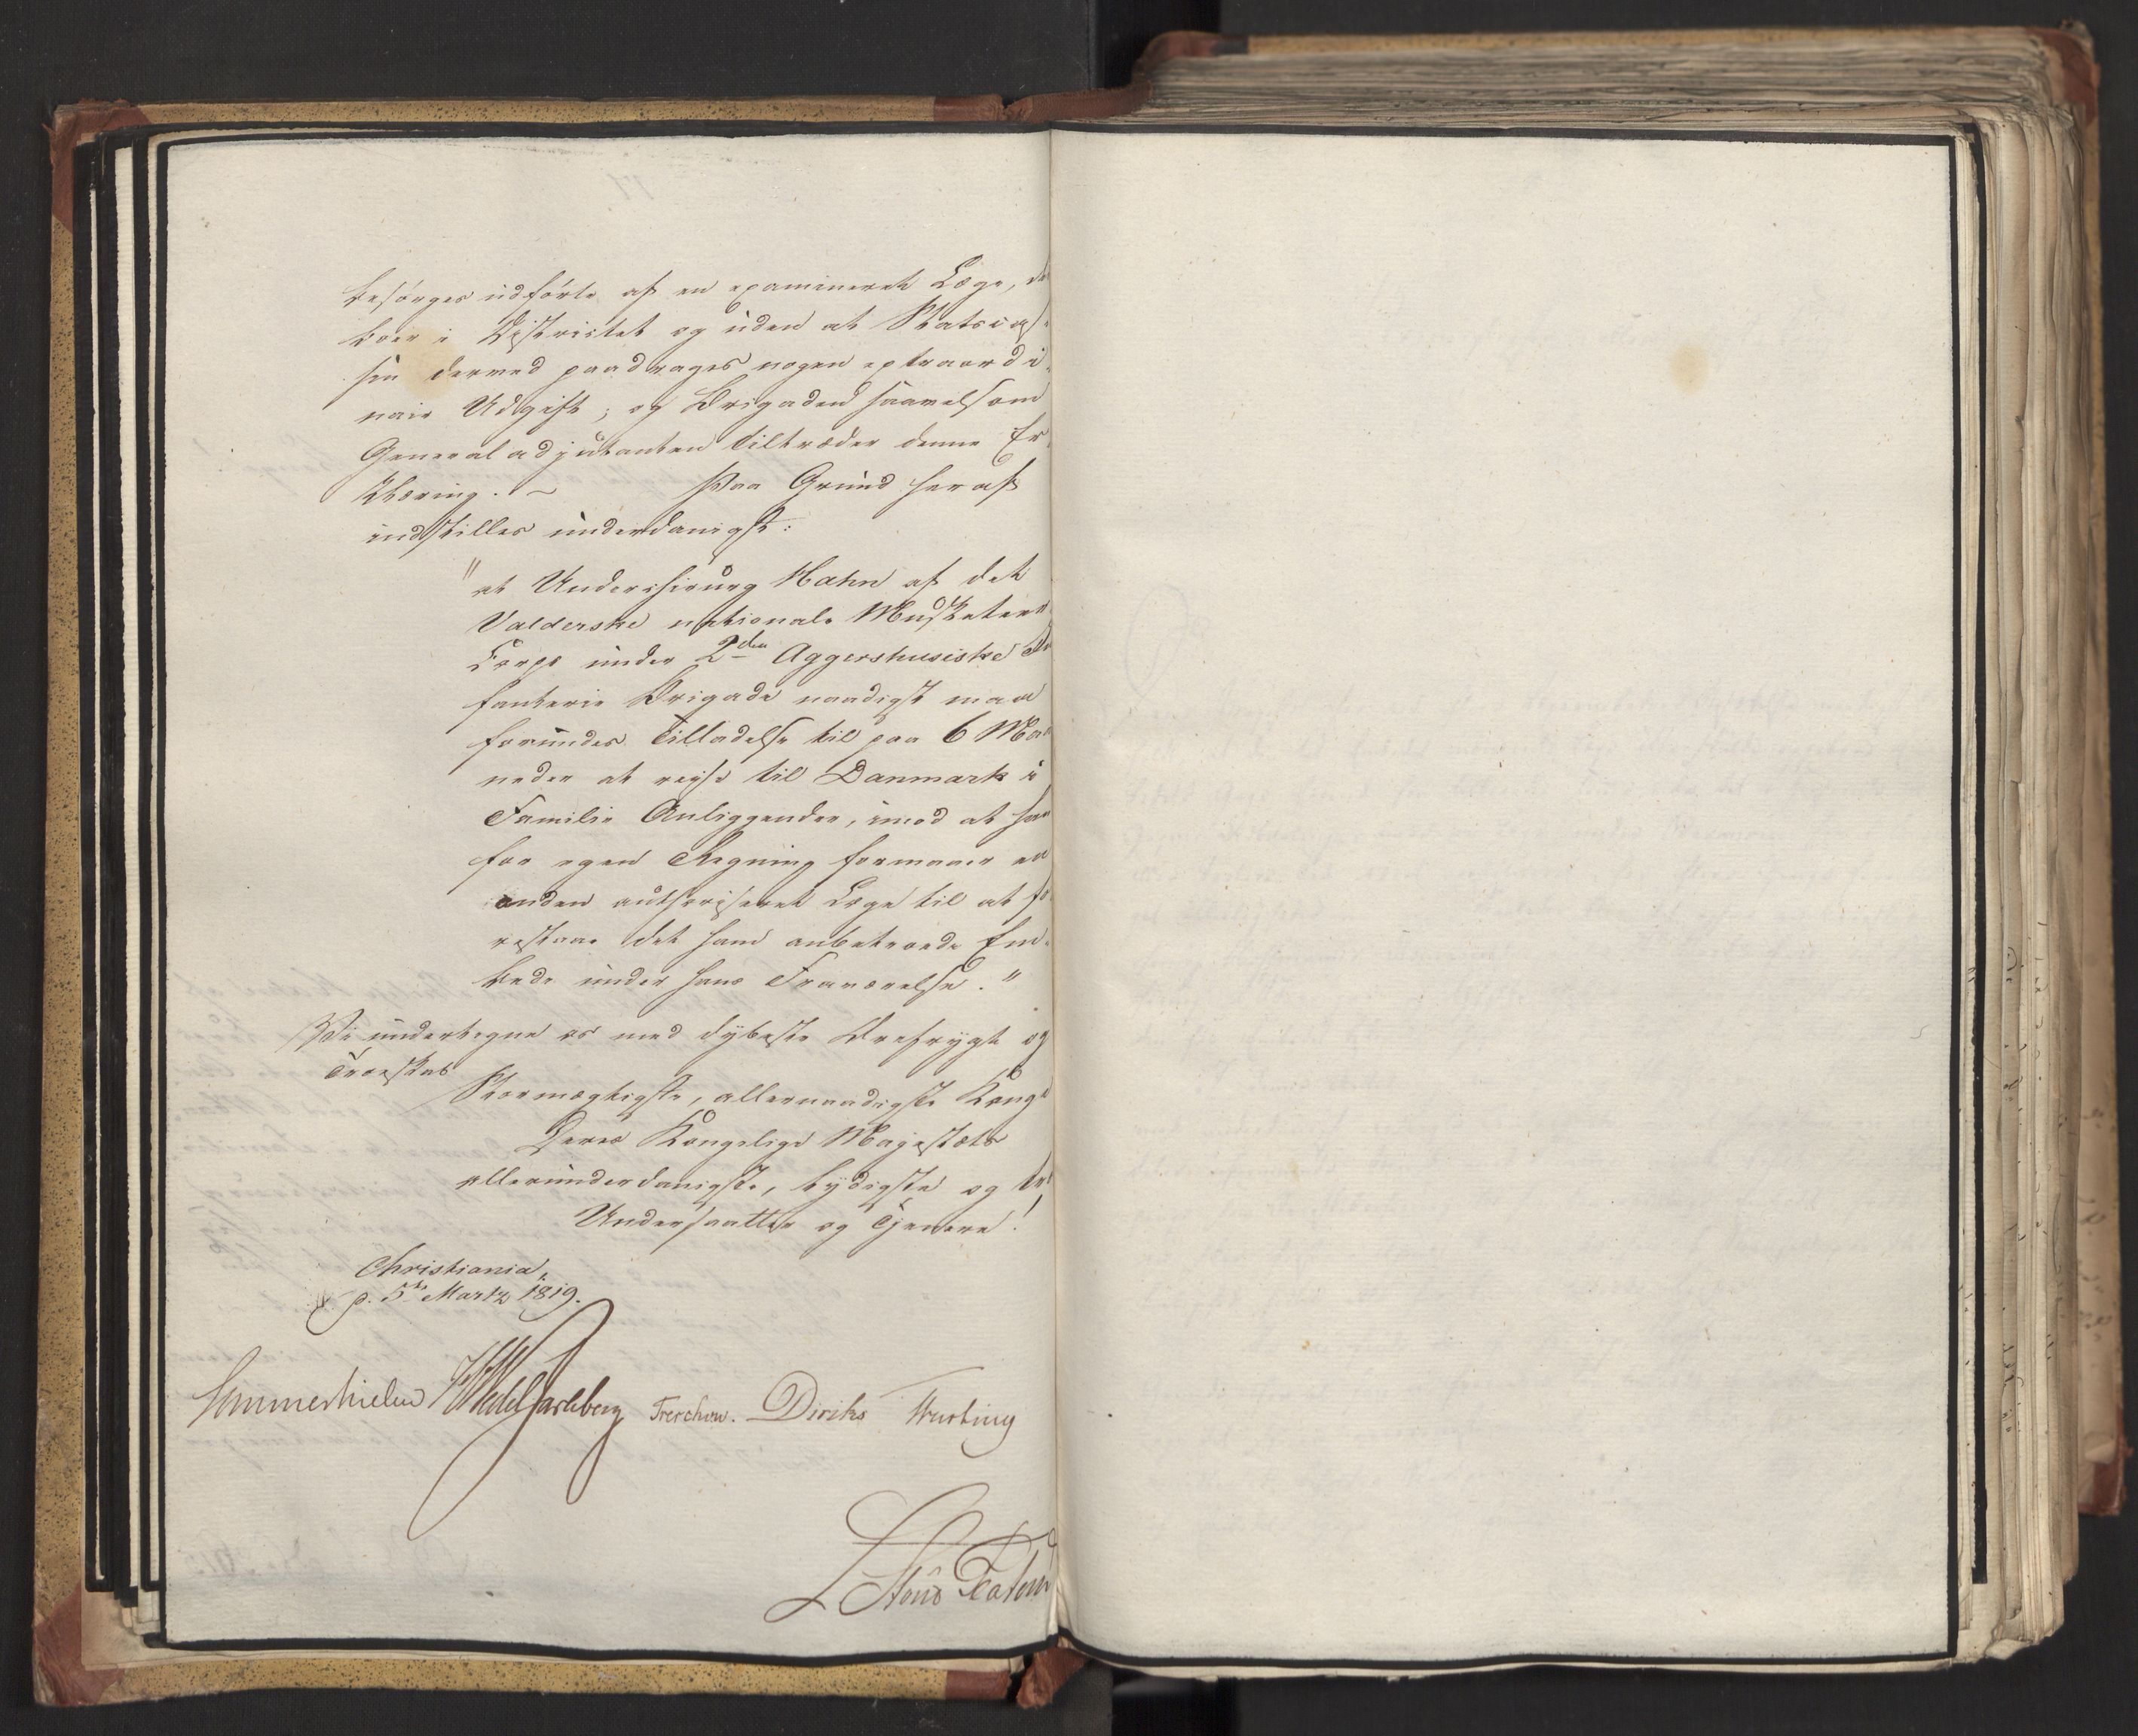 besørges udførte af en examineret Læge, de
boer i Districtet og uden at Statscas¬
sen derved paadrages nogen extraordi¬
nair Udgift; og Brigaden saavelsom
Generaladjutanten tiltræder denne Er¬
klæring. ~ Paa Grund heraf
indstilles underdanigst:
"at Underchirurg Hahn af det
Valderske nationale Musketeer
Corps under 2den Aggershusiske In
fanterie Brigade naadigst maa
forundes Tilladelse til paa 6 Maa
neder at reise til Danmark i
Familie Anliggender, imod at han
for egen Regning formaaer en
anden authoriseret Læge til at fo
restaae det ham anbetroede Em¬
bede under hans Fraværelse."
Vi undertegne os med dybeste Ærefrygt og
Troeskab
Stormægtigste, allernaadigste Konge
Deres Kongelige Majestæts
allerunderdanigste, lydigste og tro
Undersaatter og Tjenere!
Christiania,
d. 5te Martz 1819.
Sommerhielm HWedelJarlsberg Treschow. Diriks Fasting
Hans